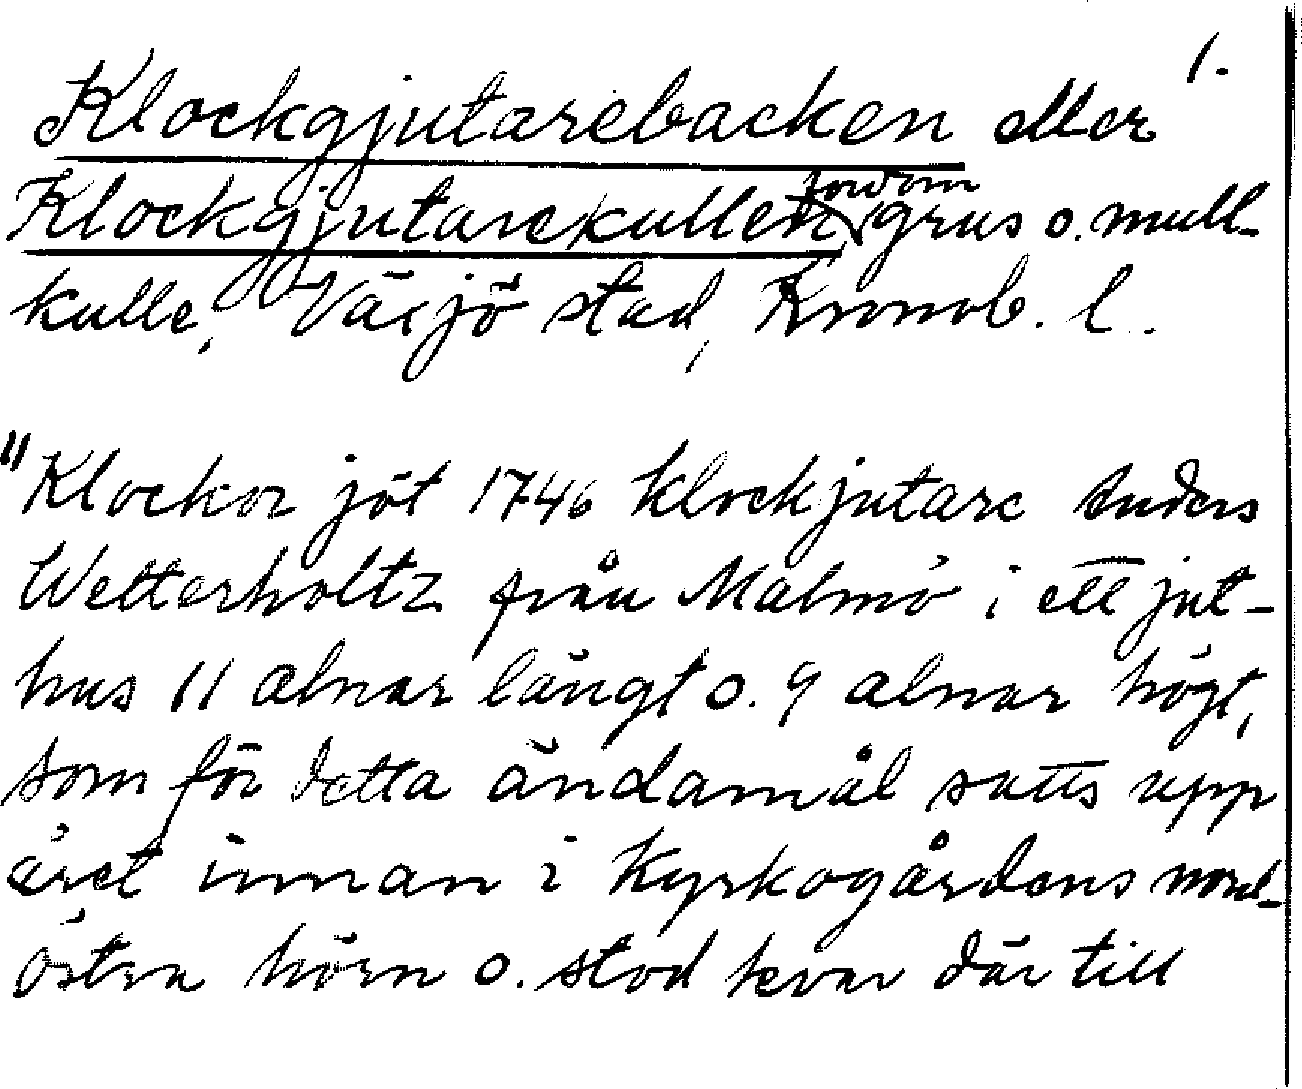 1.
Klockgjutarebacken eller
Klockgjutarekullen, fordom grus o. mull-
kulle, Växjö stad, Kronob. l.
"Klockor jöt 1746 klockjutare Anders
Wetterholtz från Malmö i ett jut-
hus 11 alnar långt o. 9 alnar högt,
som för detta ändamål satts upp
året innan i Kyrkogårdens nord-
östra hörn o. stod kvar där till